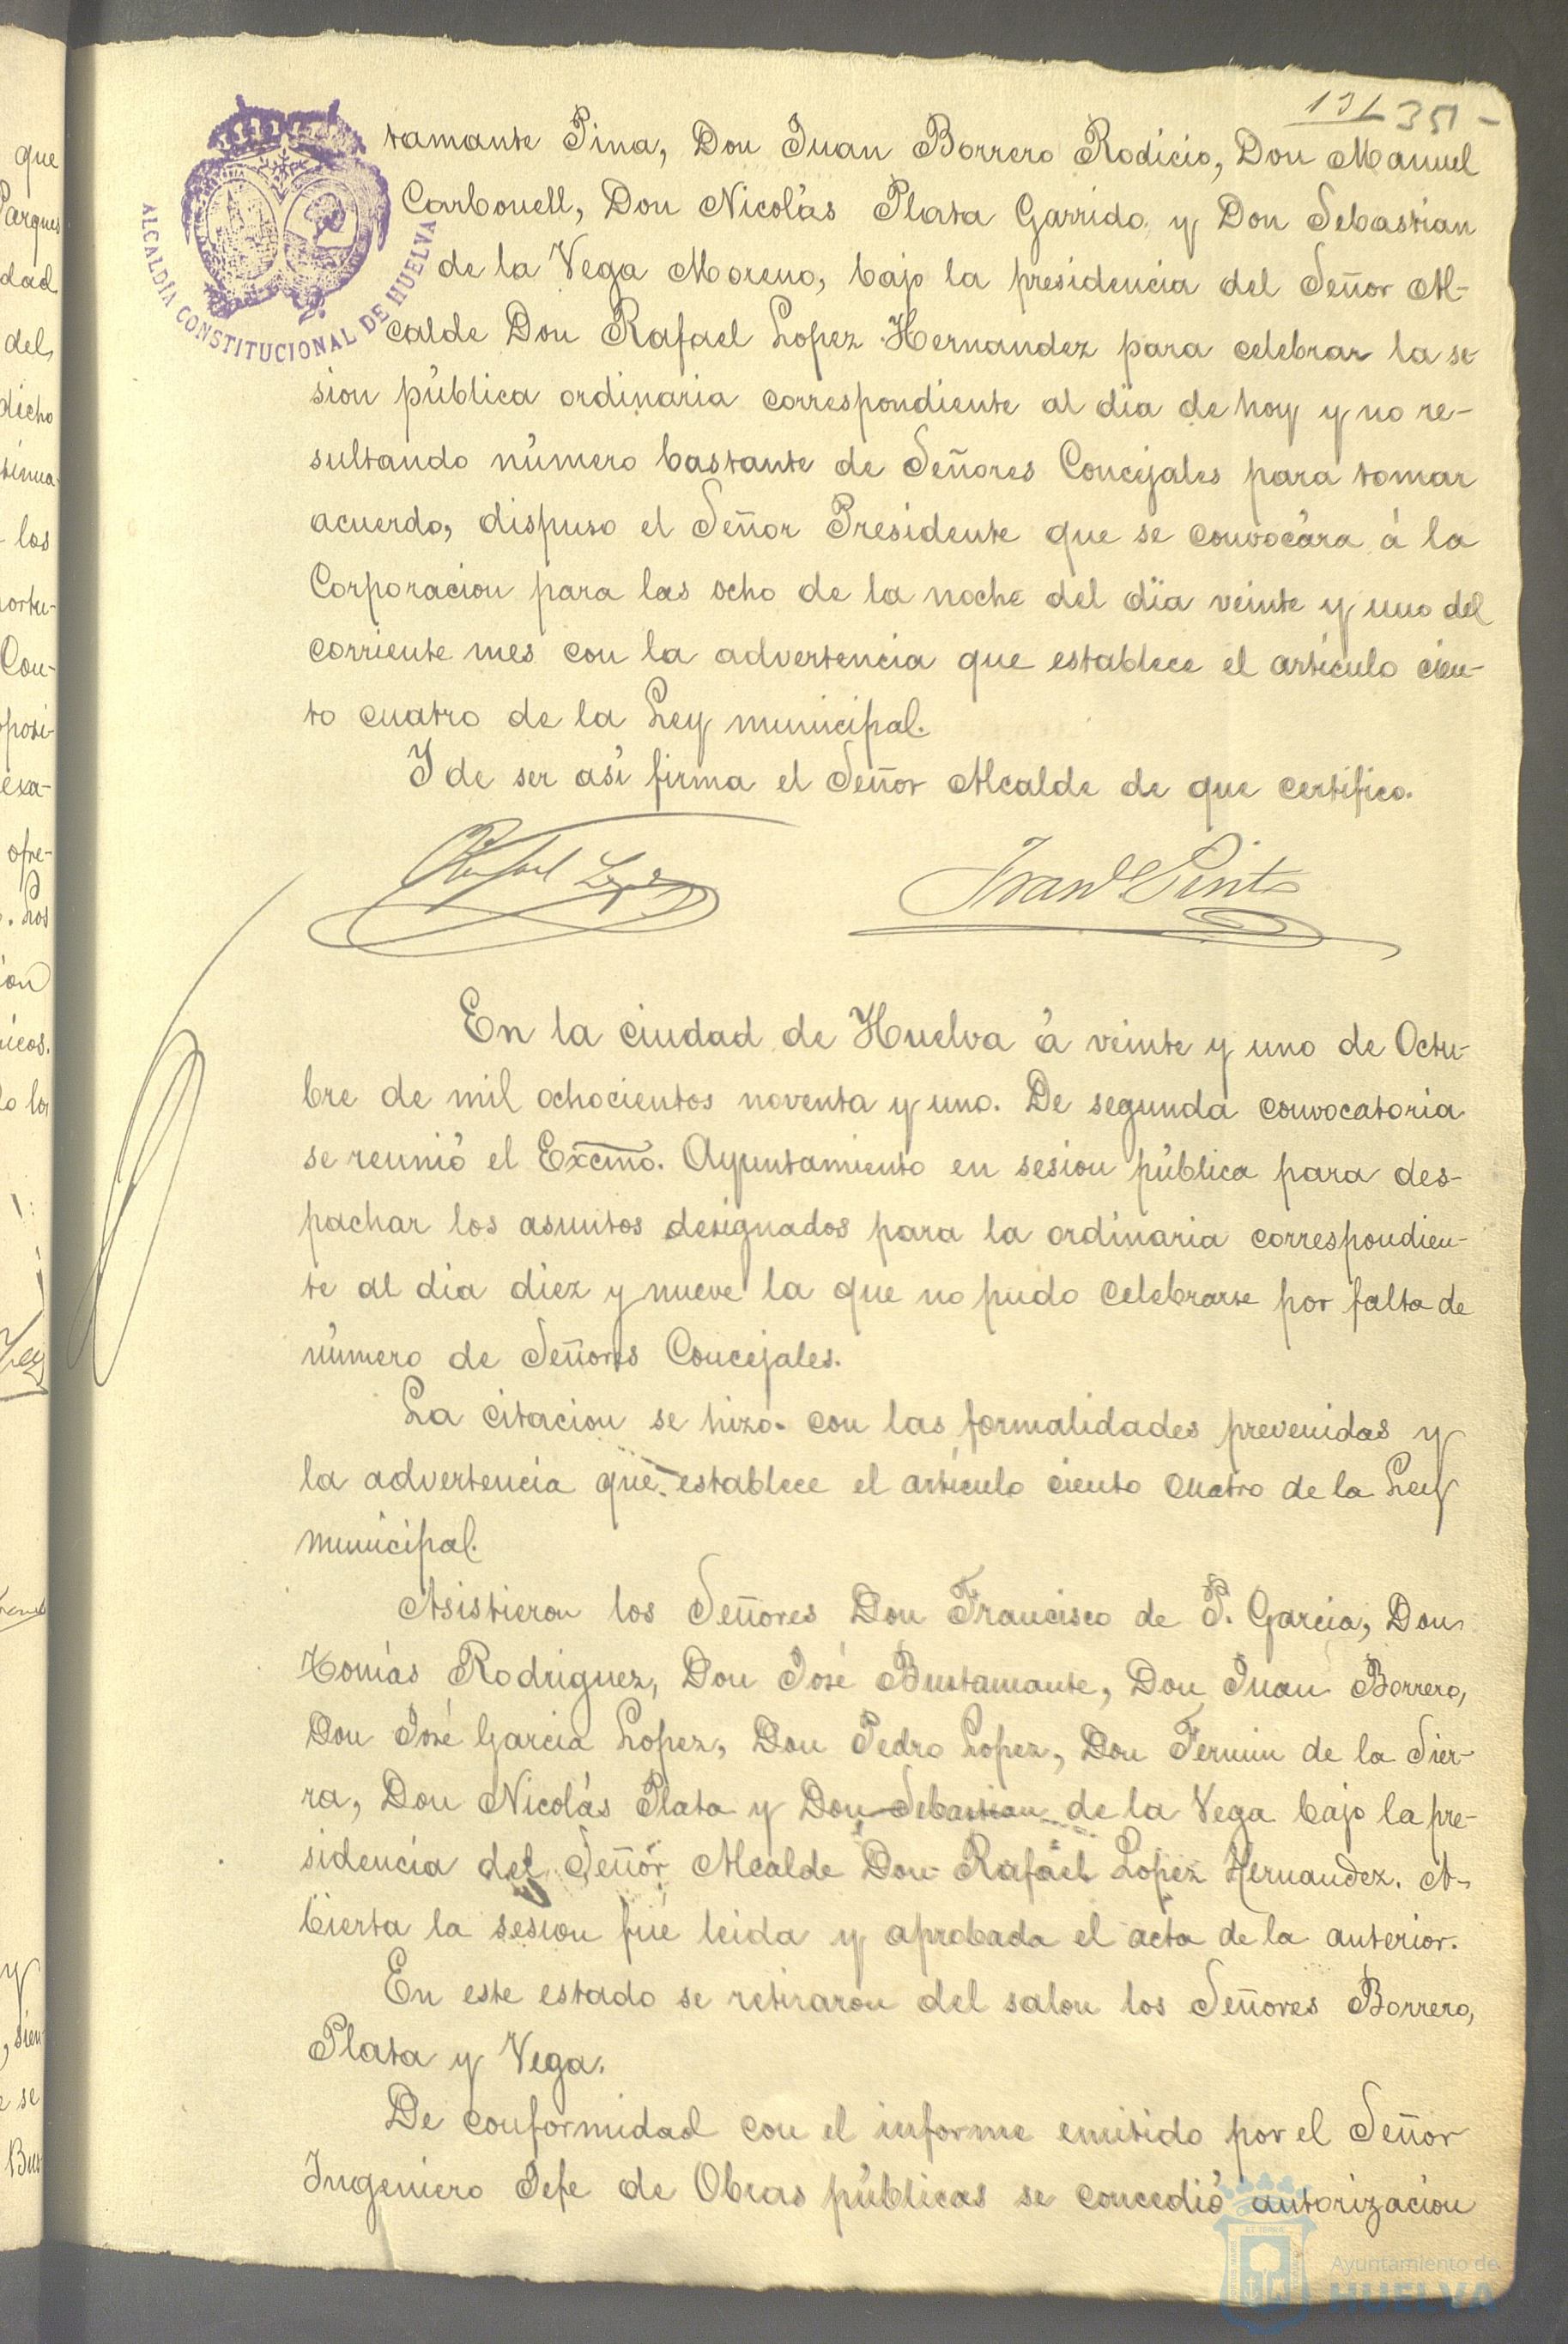 tamante Pina, Don Juan Borrero Rodicio, Don Manuel
Carbonell, Don Nicolás Plata Garrido y Don Sebastian
de la Vega Moreno, bajo la presidencia del Señor Al-
calde Don Rafael Lopez Hernandez para celebrar la se
sion pública ordinaria correspondiente al dia de hoy y no re-
sultando número bastante de Señores Concejales para tomar
acuerdo, dispuso el Señor Presidente que se convocára á la
Corporacion para las ocho de la noche del dia veinte y uno del
corriente mes con la advertencia que establece el artículo cien-
to cuatro de la Ley municipal.
Y de ser así firma el Señor Alcalde de que certifico.
Rafael Lopez
Juan Pinto
En la ciudad de Huelva á veinte y uno de Octu-
bre de mil ochocientos noventa y uno. De segunda convocatoria
se reunió el Excmo. Ayuntamiento en sesion pública para des-
pachar los asuntos designados para la ordinaria correspondien-
te al dia diez y nueve la que no pudo celebrarse por falta de
número de Señores Concejales.
La citacion se hizo con las formalidades prevenidas y
la advertencia que establece el artículo ciento cuatro de la Ley
municipal.
Asistieron los Señores Don Francisco de P. Garcia, Don
Tomás Rodriguez, Don José Bustamante, Don Juan Borrero,
Don José Garcia Lopez, Don Pedro Lopez, Don Fermin de la Sier-
ra, Don Nicolás Plata y Don Sebastian de la Vega bajo la pre-
sidencia del Señor Alcalde Don Rafael Lopez Hernandez. A-
bierta la sesion fué leida y aprobada el acta de la anterior.
En este estado se retiraron del salon los Señores Borrero,
Plata y Vega.
De conformidad con el informe emitido por el Señor
Ingeniero Jefe de Obras públicas se concedió autorizacion
ALCALDÍA CONSTITUCIONAL DE HUELVA
Ayuntamiento de
HUELVA